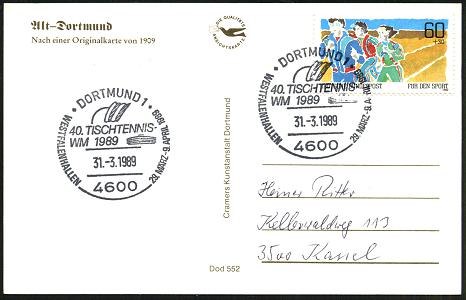 Alt-Dortmund
Nach einer Originalkarte von 1909
DIE QUALITÄTS
ANSICHTSKARTE
60
+30
POST
FÜR DEN SPORT
DORTMUND 1
WESTFALENHALLEN
40. TISCHTENNIS-
WM 1989
31.-3.1989
4600
29. MÄRZ-9. APRIL 1989
DORTMUND 1
WESTFALENHALLEN
40. TISCHTENNIS-
WM 1989
31.-3.1989
4600
29. MÄRZ-9. A
1989
Cramers Kunstanstalt Dortmund
Herner Ritter
Kellerwaldweg 113
3500 Kassel
Dod 552